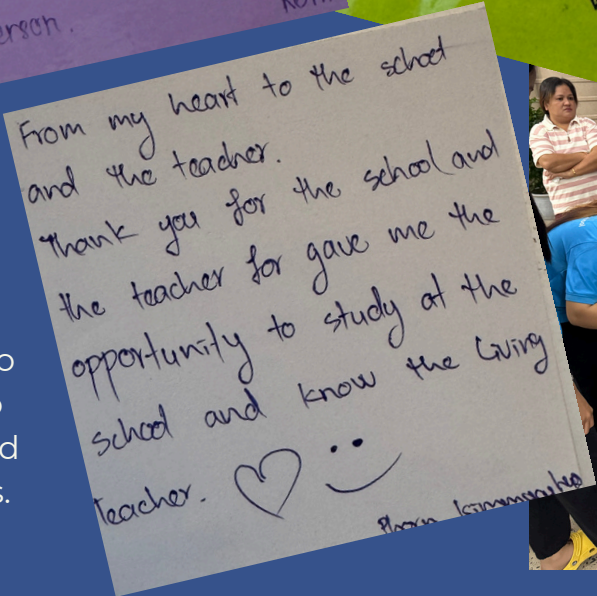 erson.
From my heart to the school
and the teacher.
Thank you for the school and
the teacher for gave me the
opportunity to study at the
school and know the Living
teacher.
o
d
s.